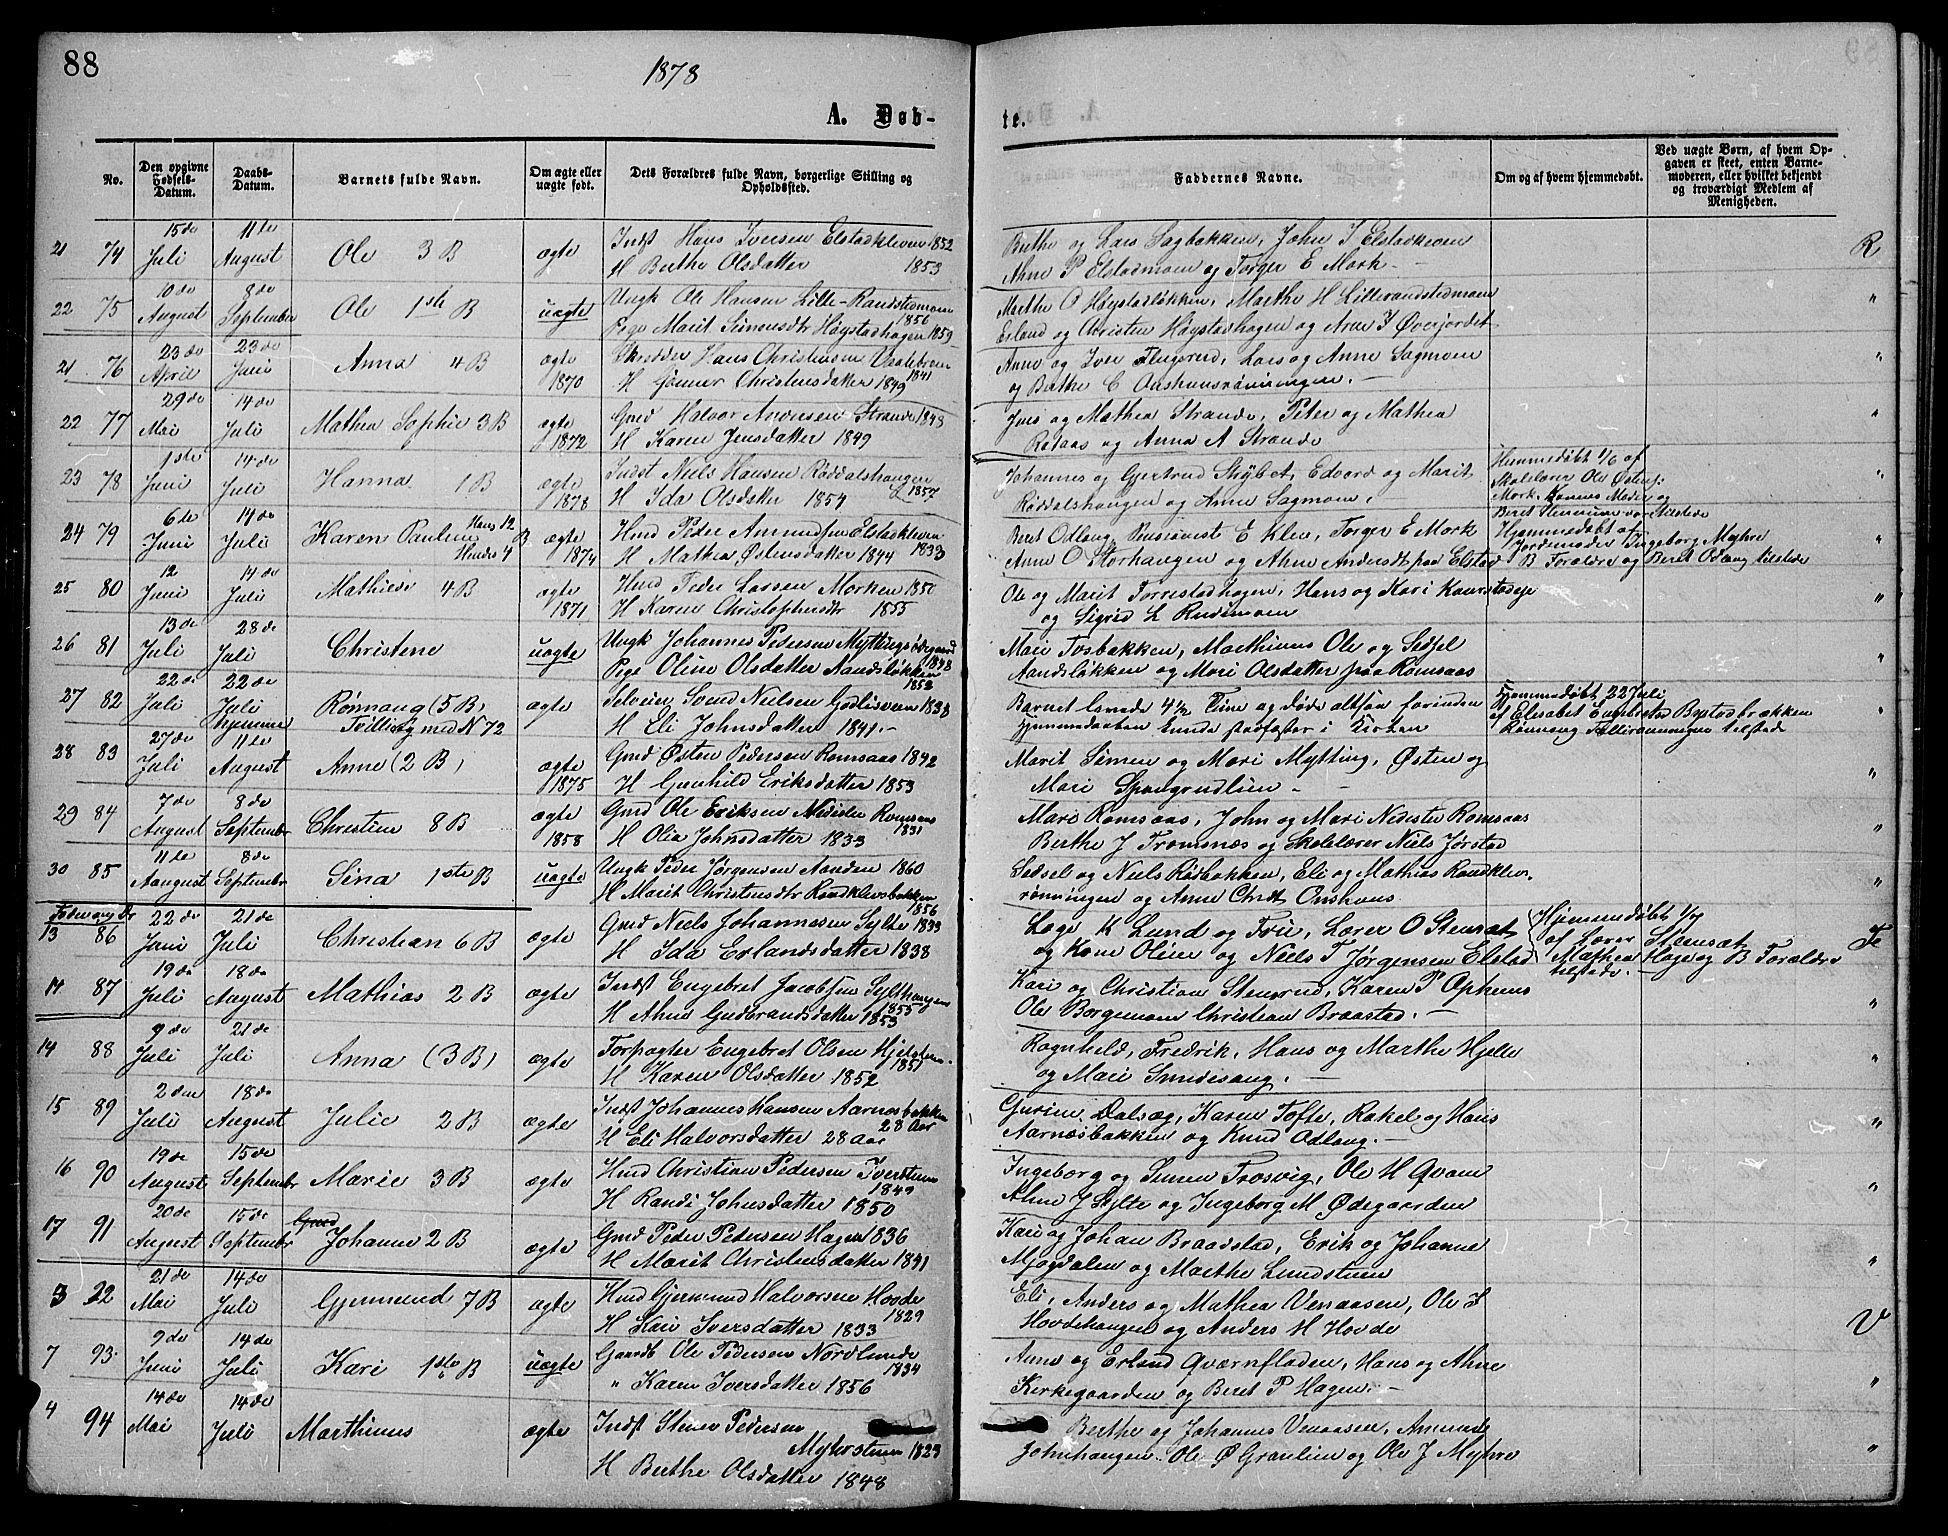 88
1878
A. Døb-
te.
No.
Den opgivne Fødsels-Datum.
Daabs-Datum.
Barnets fulde Navn.
Om ægte eller uægte født.
Dets Forældres fulde Navn, borgerlige Stilling og Opholdssted.
Faddernes Navne.
Om og af hvem hjemmedøbt.
Ved uægte Børn, af hvem Opgaven er skeet, enten Barnemoderen, eller hvilket bekjendt og troværdigt Medlem af Menigheden.
21 74 15de Juli 11te August Ole 3 B ægte Indst Hans Iversen Elstadkleven 1852
H Berthe Olsdatter 1853
Berthe og Lars Sagbakken, John I Elstadkleven
Ahne P Elstadmoen og Torger E Mork R
22 75 10de August 8de September Ole 1ste B uægte Ungk Ole Hansen Lille-Randstedmoen 1856
Pige Marit Simensdtr Høystadhagen 1859
Marthe O Høystadløkken, Marthe H Lillerandstedmoen
Erland og Christen Høystadhagen og Arne I Øverjordet "
21 76 23de April 23de Juni Anna 4 B ægte 1870 Skrædder Hans Christensen Vaalebroen 1841
H Gunner Christensdatter 1849
Anne og Iver Flugsrud, Lars og Anne Sagmoen
og Berthe C Onshuusrønningen. "
22 77 29de Mai 14de Juli Mathea Sophie 3 B ægte 1872 Gmd Halvor Andersen Strande 1848
H Karen Jensdatter 1849
Jens og Mathea Strande, Peter og Mathea
Rolaas og Anna A Strande "
23 78 1ste Juni 14de Juli Hanna 1 B ægte 1878 Indst Niels Hansen Røddalshaugen 1857
H Ida Olsdatter 1854
Johannes og Gjertrud Skybet, Edvard og Marit
Røddalshaugen og Anne Sagmoen.
Hjemmedøbt 1/6 af
Skolelærer Ole Østensj.
Mork. Konens Moder og
Beret Stenrune var tilstede "
24 79 6te Juni 14de Juli Karen Pauline Hans 12 B Hendes 4 ægte 1874 Hmd Peder Amundsen Elstadkleven 1833
H Mathea Østensdatter 1844
Beret Odlang, Pensionist E Klev, Torger E Mork
Anne O Storhaugen og Ahne Andersdt paa Elstad
Hjemmedøbt af
Jordemoder Ingeborg Myhre
B Forældre og Beret Odlang tilstede "
25 80 12 Juni 14de Juli Mathilde 4 B ægte 1871 Hmd Peder Larsen Morken 1850
H Karen Christophersdtr 1855
Ole og Marit Forrestadhagen, Hans og Kari Kaurstadeje
og Sigrid L Rudsmoen "
26 81 13de Juli 28de Juli Christene uægte Ungk Johannes Pedersen Myttingsødegaard 1848
Pige Oline Olsdatter Aandsløkken 1852
Mari Tosbakken, Marthinus Ole og Sidsel
Aandsløkken og Mari Olsdatter paa Romsaas "
27 82 22de Juli 22de Juli hjemme Rønnaug (5 B) Tvilling med N 72 ægte Selveier Svend Nielsen Godlisveen 1838
H Eli Johnsdatter 1841.-
Barnet levede 4½ Time og døde altsaa forinden
Hjemmedaaben kunde stadfæstes i Kirken
Hjemmedøbt 22 Juli
af Elisabet Engebretsd Bystadbrækken
Rønnaug Tollivrønningen tilstede "
28 83 27de Juli 11te August Anne (2 B) ægte 1875 Gmd Østen Pedersen Romsaas 1842
H Gunhild Eriksdatter 1853
Marit Simen og Mari Mytting, Østen og
Mari Spangrudlien "
29 84 7de August 8de September Christine 8 B ægte 1858 Gmd Ole Eriksen Nedistu Romsaas 1831
H Olia Johnsdatter 1833
Mari Romsaas, John og Mari Nedistu Romsaas
Berthe J Tromsnæs og Skolelærer Niels Jørstad "
30 85 11te August 8de September Sina 1ste B uægte Ungk Peder Jørgensen Aanden 1860
H Marit Christensdtr Randklevsbakken 1856
Sidsel og Niels Rødbakken, Eli og Mathias Randklev-
rønningen og Anne Chrdt Onshuus "
13 86 22de Juni 21de Juli Christian 6 B ægte Gmd Niels Johannesen Sylte 1833
H Ida Erlandsdatter 1838
Læge K Lund og Frue, Lærer O Stensæt
og Kone Oline og Niels T Jørgensen Elstad
Hjemmedøbt 1/7
af Lærer Stensæt
Mathea Hage og B Forældre
tilstede. Fe
14 87 19de Juli 18de August Mathias 2 B ægte Indst Engebret Jacobsen Sylthaugen 1855
H Ahne Gudbrandsdatter 1853
Kari og Christian Stensrud, Karen P Opheims
Ole Borgemoen Christian Braastad. "
14 88 9de Juli 21de Juli Anna (3 B) ægte Forpagter Engebret Olsen Hjelstuen 1851
H Karen Olsdatter 1852
Ragnhild, Fredrik, Hans og Marthe Hjelle
og Mari Sundesang. "
15 89 2den Juli 18de August Julie 2 B ægte Indst Johannes Hansen Aarnæsbakken 28 Aar
H Eli Halvorsdatter 28 Aar
Gurine Dalsæg, Karen Tofte, Rakel og Hans
Aarnæsbakken og Knud Odlang. "
16 90 19de August 15de September Marie 3 B ægte Hmd Christian Pedersen Iverstuen 1849
H Randi Johnsdatter 1850
Ingeborg og Simen Trosvig, Ole H Qvam
Ahne J Sylte og Ingeborg M Ødegaarden "
17 91 20de August 15de September Johanne 2 B ægte Gmd Peder Pedersen Hagen 1836
H Marit Christensdatter 1841
Kari og Johan Braastad, Erik og Johanne
Mjogdalen og Marthe Lundstuen "
3 92 21de Mai 14de Juli Gjermund 7 B ægte Hmd Gjermund Halvorsen Hovde 1829
H Kari Iversdatter 1833
Eli, Anders og Mathea Venaasen, Ole I
Hovdehaugen og Anders H Hovde V
7 93 9de Juni 14de Juli Kari 1ste B uægte Gaardb Ole Pedersen Nordlunde 1834
" Karen Iversdatter 1856
Anne og Erland Qværnfloden, Hans og Ahne
Kirkegaarden og Beret P Hagen. "
4 94 14de Mai 14de Juli Marthinus ægte Indst Stener Pedersen
Myhrstuen 1823
H Berthe Olsdatter 1848
Berthe og Johannes Venaasen, Amund
Johnhaugen. Ole Ø Graulien og Ole J Myhre "